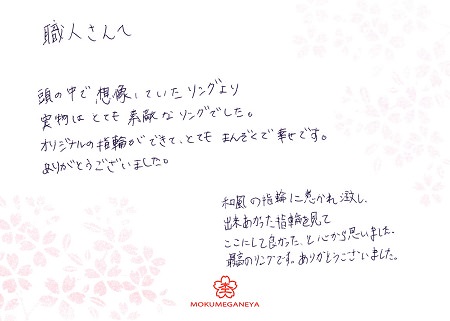 職人さんへ
頭の中で想像していたリングより
実物はとても素敵なリングでした。
オリジナルの指輪ができて、とてもまんぞくで幸せです。
ありがとうございました。
和風の指輪に惹かれ致し、
出来あがった指輪を見て
ここにして良かった、と心から思いました。
最高のリングです。ありがとうございました。
MOKUMEGANEYA